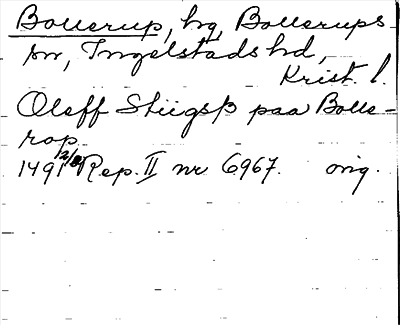 Bollerup, hg, Bollerups
sn, Ingelstads hd,
Krist. l.
Oleff Stiigsß paa Bolle-
rop
1491 12/8 Rep. II nr 6967. orig.